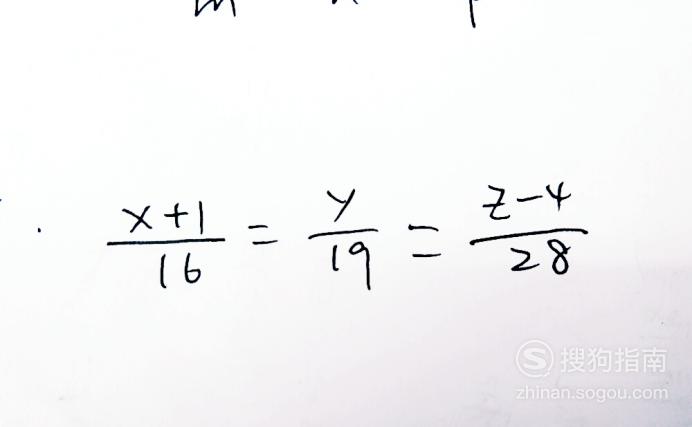 x+1/16 = y/19 = z-4/28
S 搜狗指南
zhinan.sogou.com